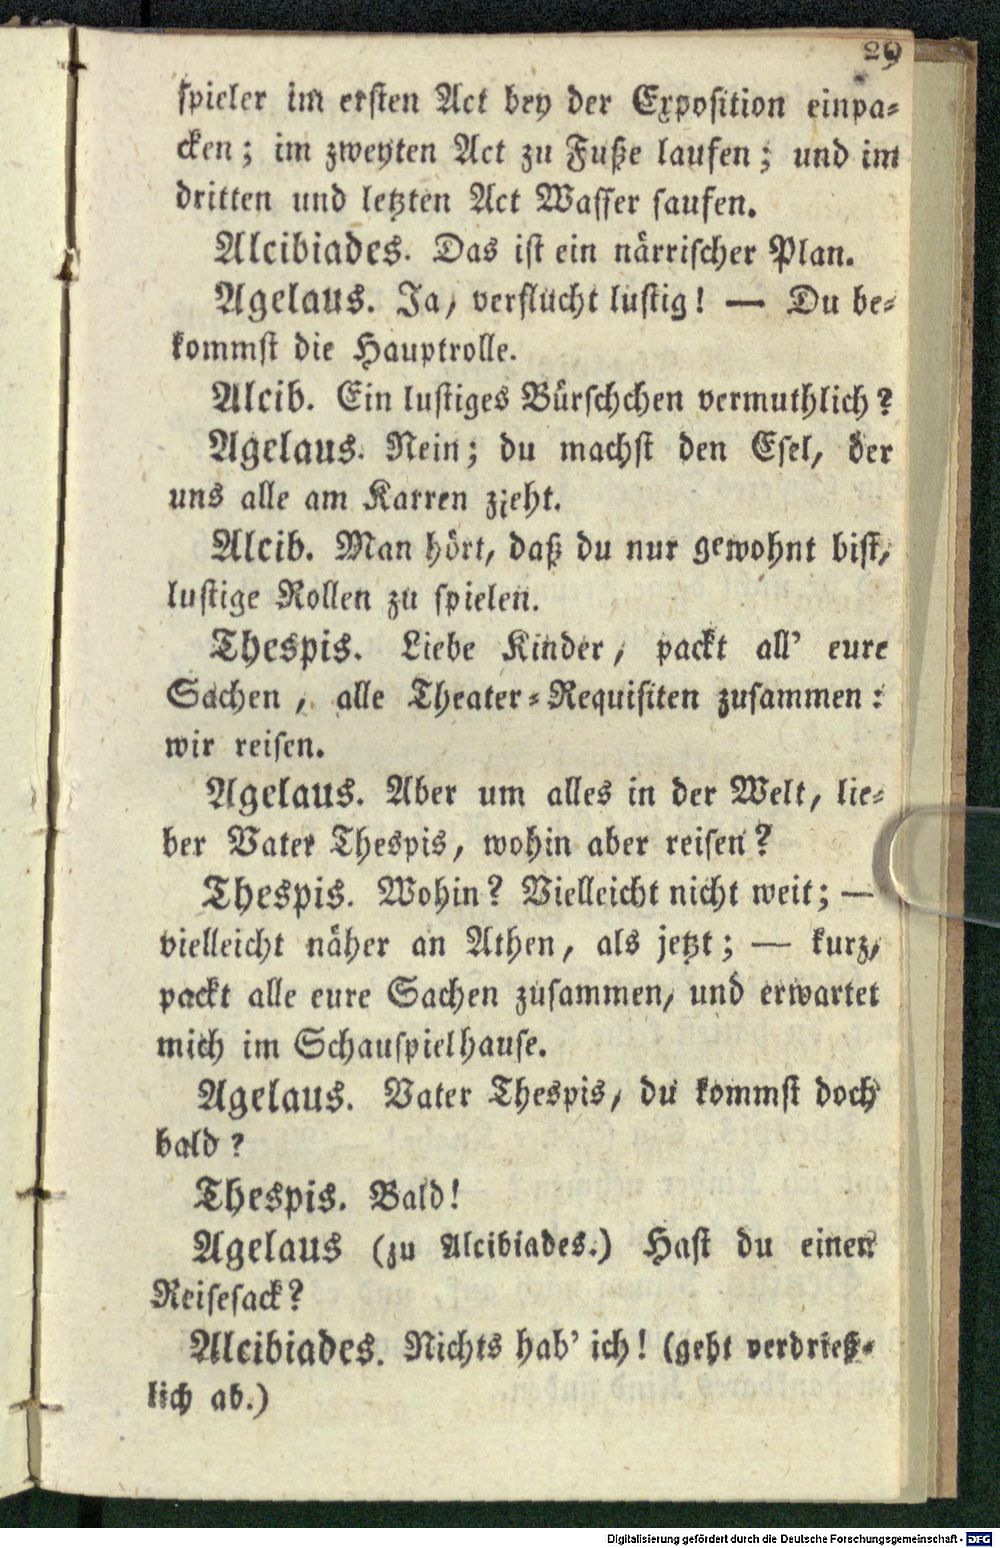 29
spieler im ersten Act bey der Exposition einpa-
cken; im zweyten Act zu Fuße laufen; und im
dritten und letzten Act Wasser saufen.
Alcibiades. Das ist ein närrischer Plan.
Agelaus. Ja, verflucht lustig! — Du be-
kommst die Hauptrolle.
Alcib. Ein lustiges Bürschchen vermuthlich?
Agelaus. Nein; du machst den Esel, der
uns alle am Karren zieht.
Alcib. Man hört, daß du nur gewohnt bist,
lustige Rollen zu spielen.
Thespis. Liebe Kinder, packt all' eure
Sachen, alle Theater-Requisiten zusammen:
wir reisen.
Agelaus. Aber um alles in der Welt, lie-
ber Vater Thespis, wohin aber reisen?
Thespis. Wohin? Vielleicht nicht weit; —
vielleicht näher an Athen, als jetzt; — kurz,
packt alle eure Sachen zusammen, und erwartet
mich im Schauspielhause.
Agelaus. Vater Thespis, du kommst doch
bald?
Thespis. Bald!
Agelaus (zu Alcibiades.) Hast du einen
Reisesack?
Alcibiades. Nichts hab' ich! (geht verdrieß-
lich ab.)
Digitalisierung gefördert durch die Deutsche Forschungsgemeinschaft - DFG